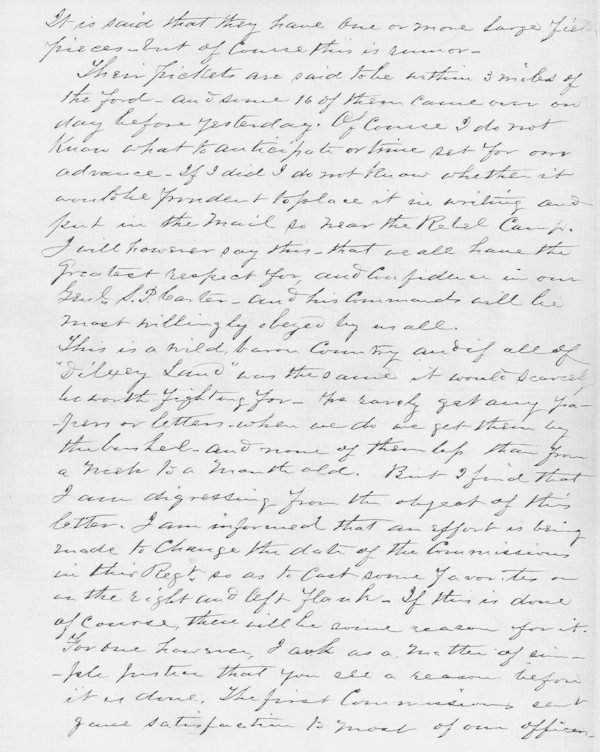 It is said that they have one or more large field
pieces - but of course this is rumor -
Their pickets are said to be within 3 miles of
the ford - and some 16 of them came over on
day before yesterday. Of Course I do not
Know what to anticipate or time set for our
advance - If I did I do not Know whether it
would be prudent to place it in writing and
put in the mail so near the Rebel Camp.
I will however say this - that we all have the
Greatest respect for, and Confidence in our
Genl. S. P. Carter - and his Commands will be
most willingly obeyed by us all.
This is a wild, baron Country and if all of
"Dilxey Land" was the same it would scarcely
be worth fighting for - We rarely get any pa-
-pers or letters - when we do we get them by
the bushel - and none of them less than from
a week to a month old. But I find that
I am digressing from the object of this
letter. I am informed that an effort is being
made to Change the date of the Commissions
in this Regt. so as to Cast some favorites on
on the right and left flank - If this is done
of course, there will be some reason for it.
For one however, I ask as a matter of sim-
-ple Justice that you see a reason before
it is done. The first Commissions sent
gave satisfaction to most of our officers -